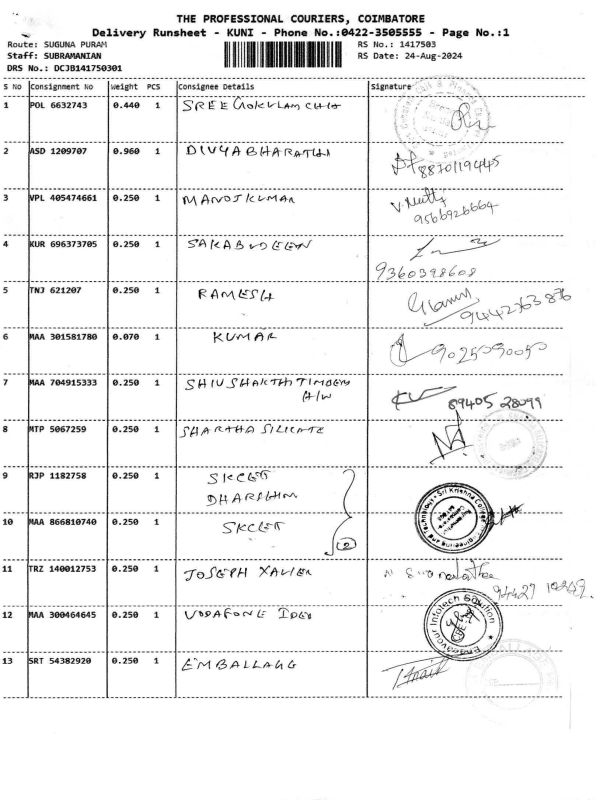 THE PROFESSIONAL COURIERS, COIMBATORE
Delivery Runsheet - KUNI - Phone No.:0422-3505555 - Page No.:1
Route: SUGUNA PURAM RS No.: 1417503
Staff: SUBRAMANIAN RS Date: 24-Aug-2024
DRS No.: DCJB141750301
S No Consignment No Weight PCS Consignee Details Signature
1 POL 6632743 0.440 1 SREE GOKULAM CHIT
2 ASD 1209707 0.960 1 DIVYABHARATHI
8870119445
3 VPL 405474661 0.250 1 MANOJKUMAR V.Mutti
9566926664
4 KUR 696373705 0.250 1 SAKABUDEEN
9360398608
5 TNJ 621207 0.250 1 RAMESH
9442363876
6 MAA 301581780 0.070 1 KUMAR 9025090050
7 MAA 704915333 0.250 1 SHIVSHAKTHI TIMBERS
H/W 89405 28099
8 MTP 5067259 0.250 1 SHARTHA SILICATE
9 RJP 1182758 0.250 1 SKCET
DHARSHM
10 MAA 866810740 0.250 1 SKCET
2
Sri Krishna College of Engineering and Technology
11 TRZ 140012753 0.250 1 JOSEPH XAVIER
94427
12 MAA 300464645 0.250 1 VODAFONE IDEA
Endeavour Infotech Solution
13 SRT 54382920 0.250 1 EMBALLAGG